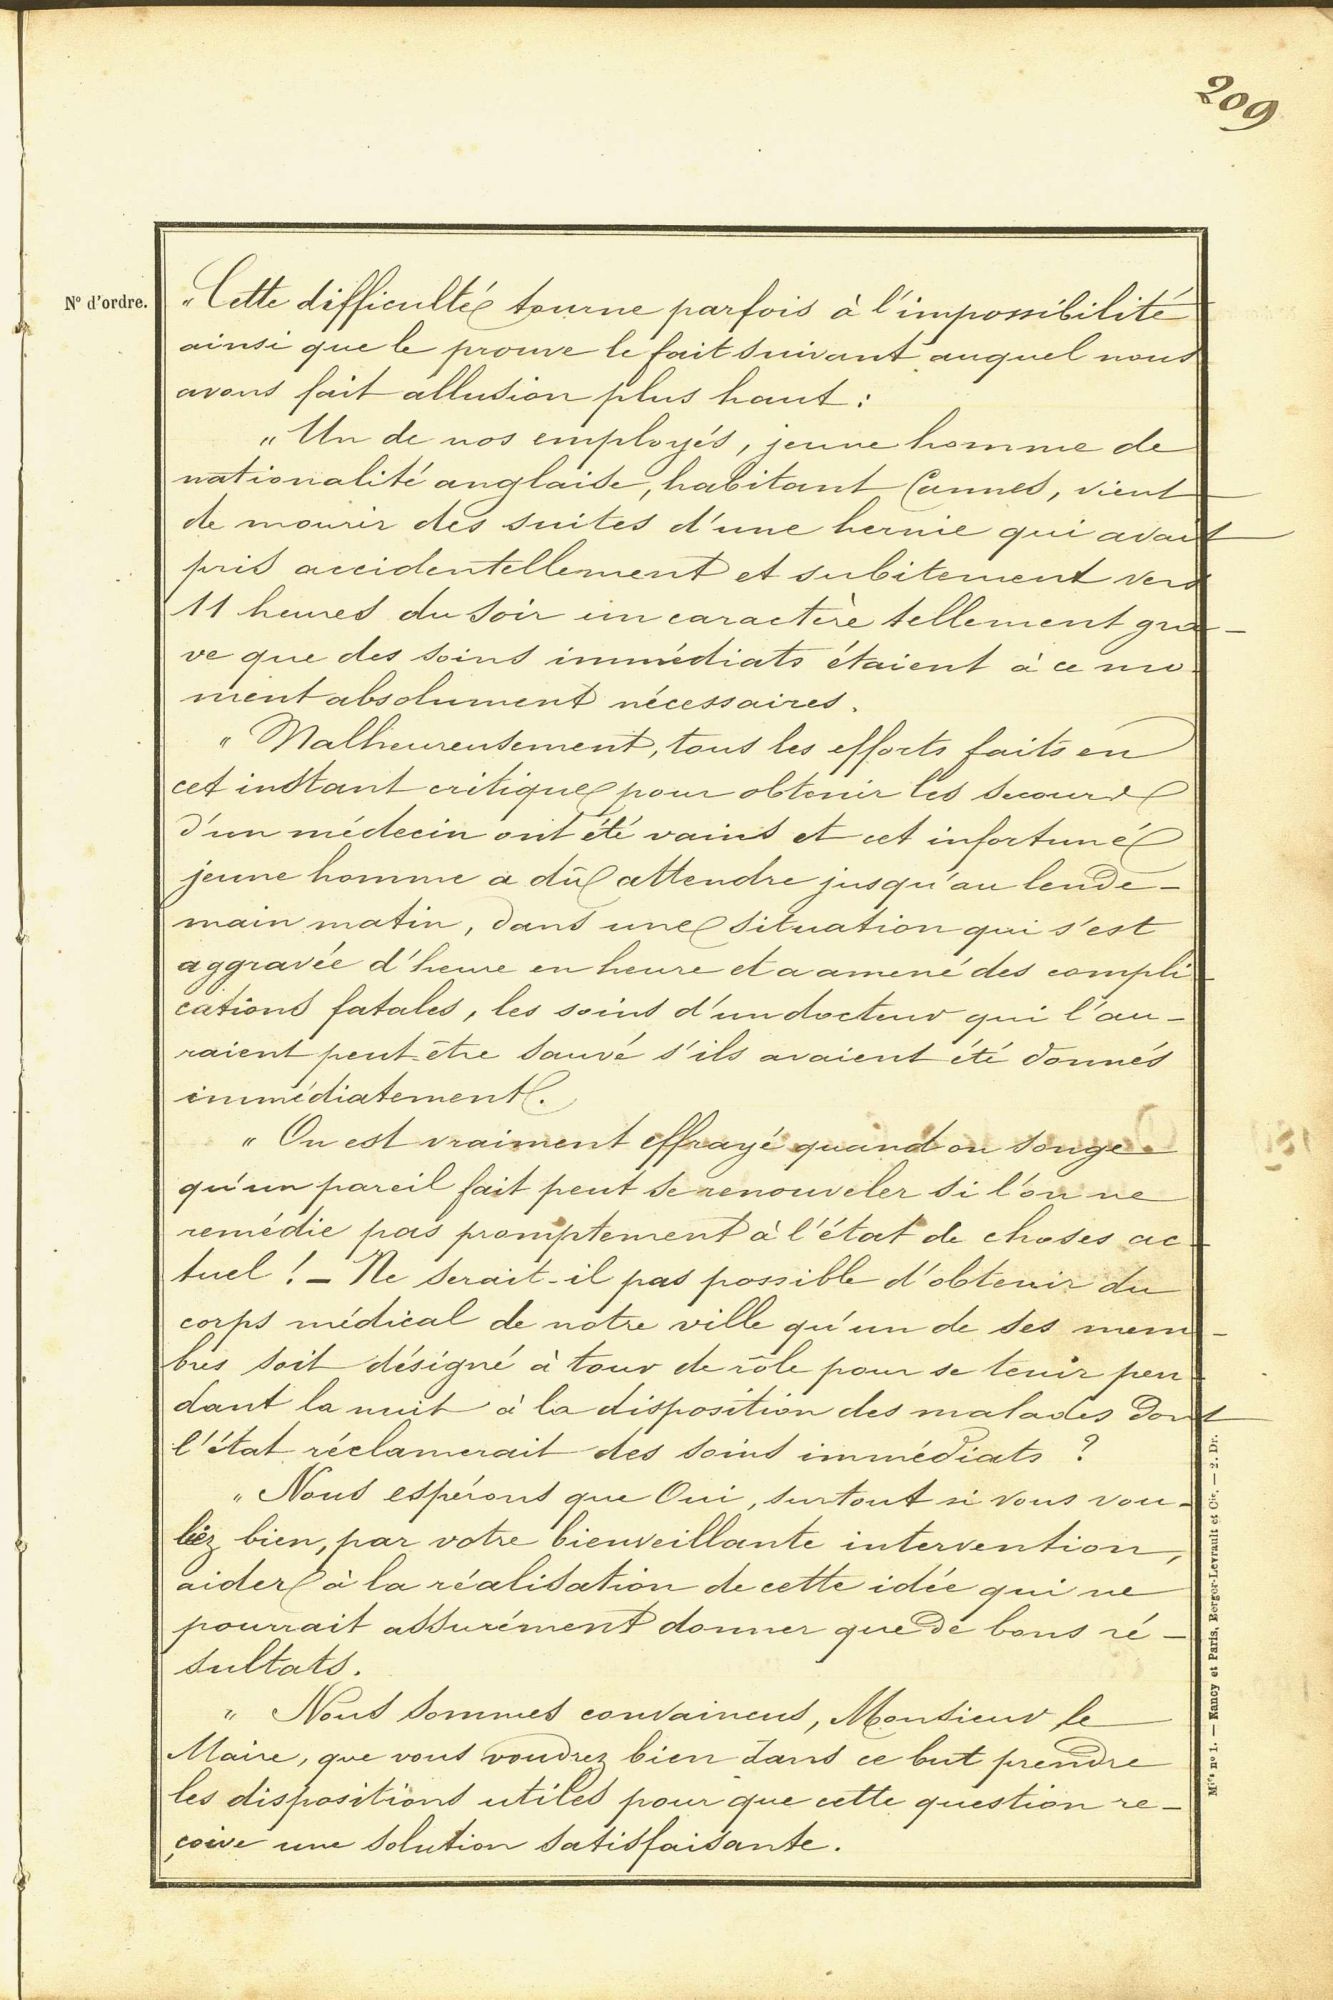 209
N° d'ordre.
" Cette difficulté tourne parfois à l'impossibilité
ainsi que le prouve le fait suivant auquel nous
avons fait allusion plus haut :
" Un de nos employés, jeune homme de
nationalité anglaise, habitant Cannes, vient
de mourir des suites d'une hernie qui avait
pris accidentellement et subitement vers
11 heures du soir un caractère tellement gra-
ve que des soins immédiats étaient à ce mo-
ment absolument nécessaires.
" Malheureusement, tous les efforts faits en
cet instant critique pour obtenir les secours
d'un médecin ont été vains et cet infortuné
jeune homme a dû attendre jusqu'au lende-
main matin, dans une situation qui s'est
aggravée d'heure en heure et a amené des compli-
cations fatales, les soins d'un docteur qui l'au-
raient peut-être sauvé s'ils avaient été donnés
immédiatement.
" On est vraiment effrayé quand on songe
qu'un pareil fait peut se renouveler si l'on ne
remédie pas promptement à l'état de choses ac-
tuel ! — Ne serait-il pas possible d'obtenir du
corps médical de notre ville qu'un de ses mem-
bres soit désigné à tour de rôle pour se tenir pen-
dant la nuit à la disposition des malades dont
l'état réclamerait des soins immédiats ?
" Nous espérons que Oui, surtout si vous vou-
liez bien, par votre bienveillante intervention,
aider à la réalisation de cette idée qui ne
pourrait assurément donner que de bons ré-
sultats.
" Nous sommes convaincus, Monsieur le
Maire, que vous voudrez bien dans ce but prendre
les dispositions utiles pour que cette question re-
çoive une solution satisfaisante.
M<sup>les</sup> n° 1. — Nancy et Paris, Berger-Levrault et C<sup>ie</sup>. — 2. Dr.